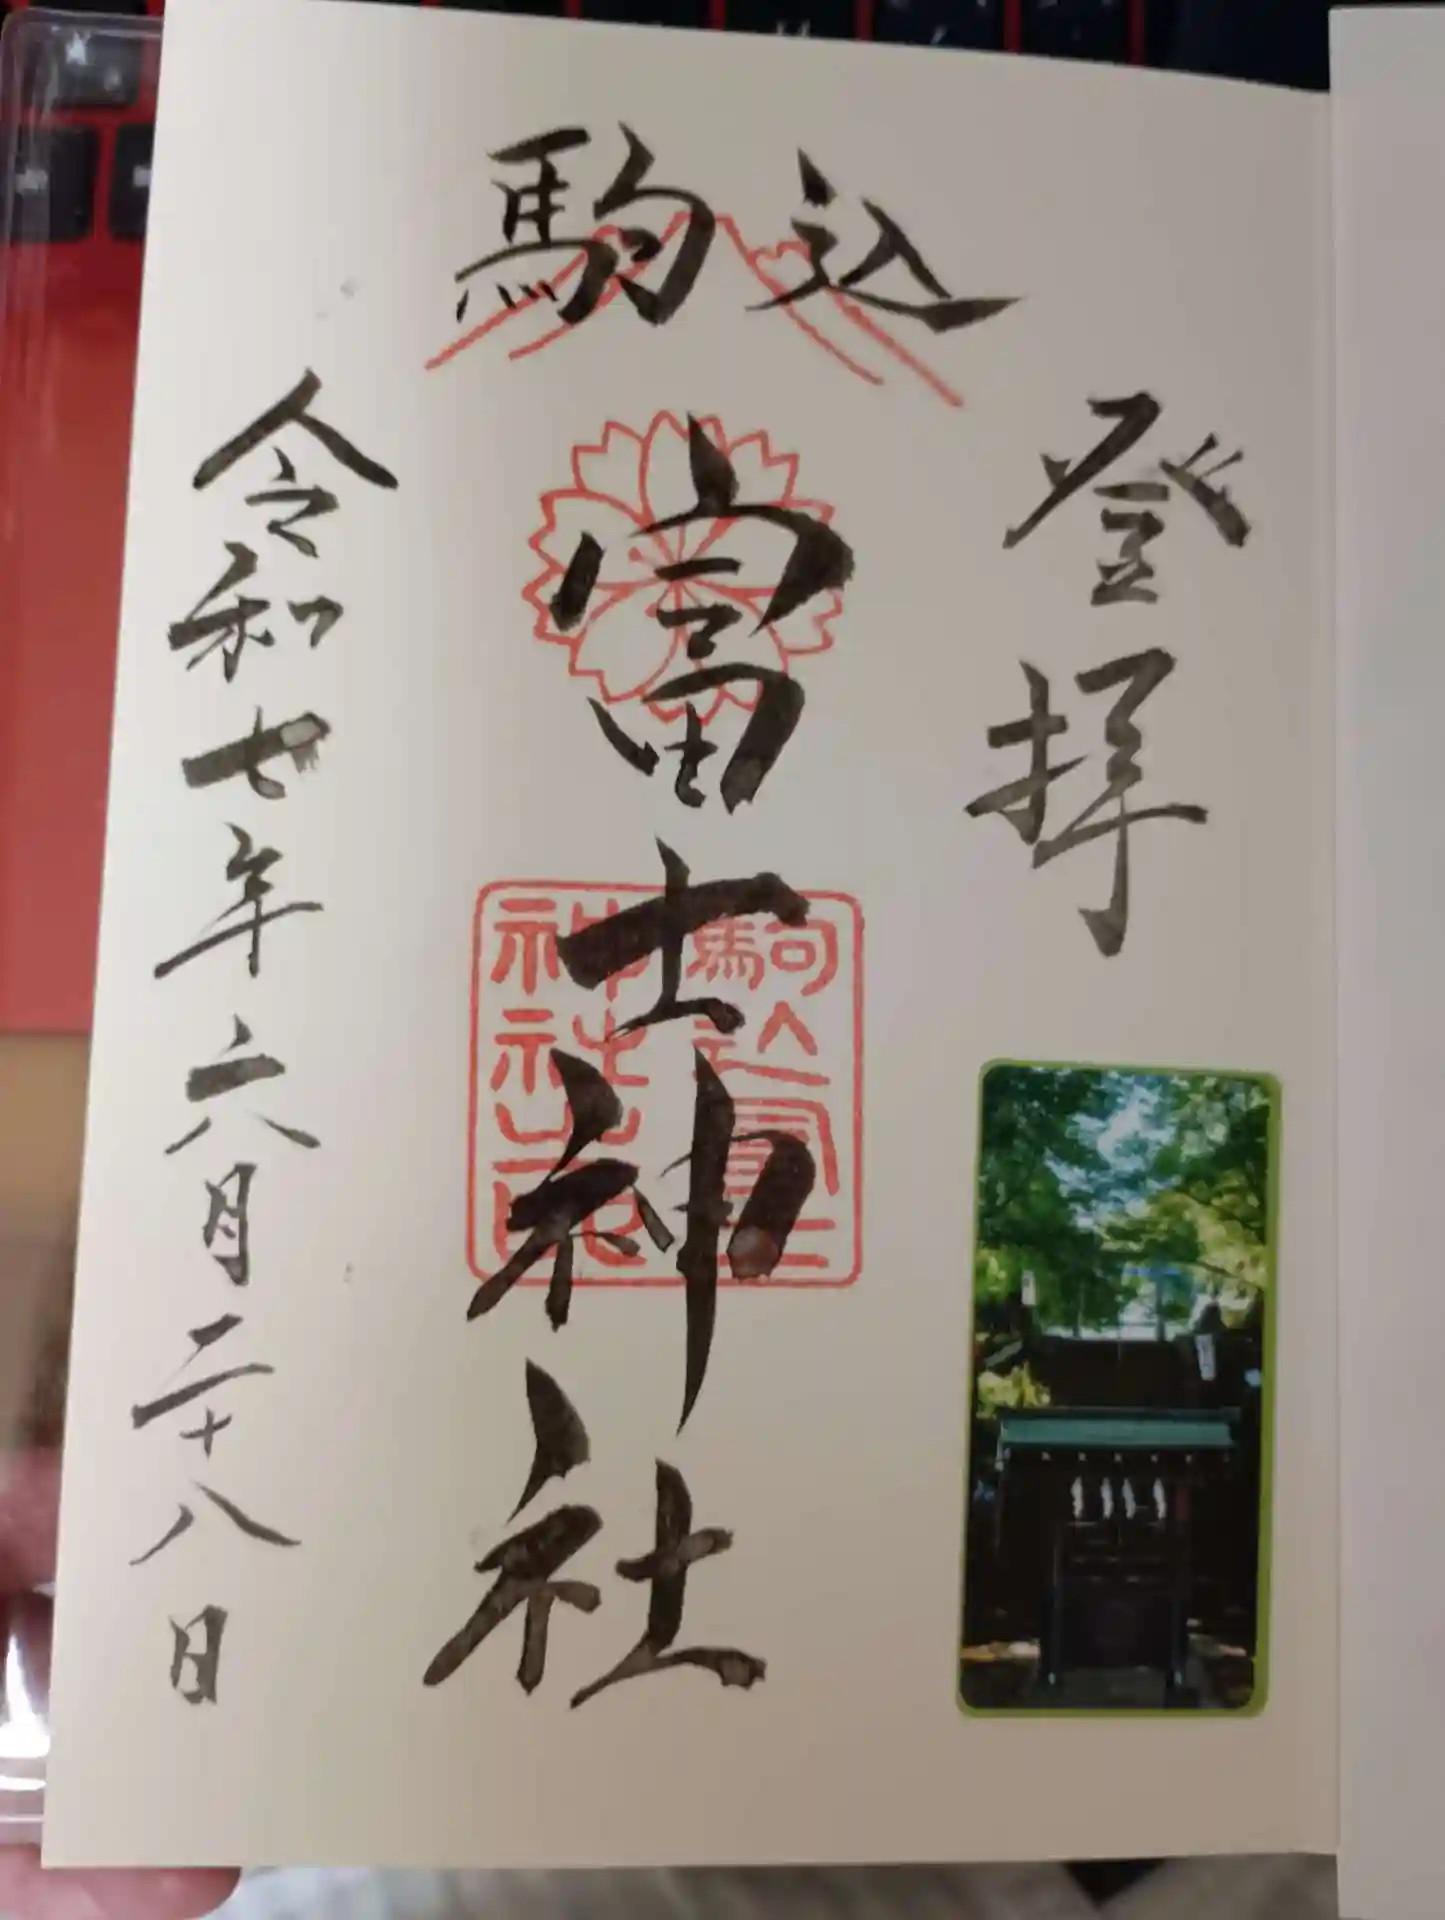 駒込
登拝
富士神社
令和七年六月二十八日
駒込富士
神社之印